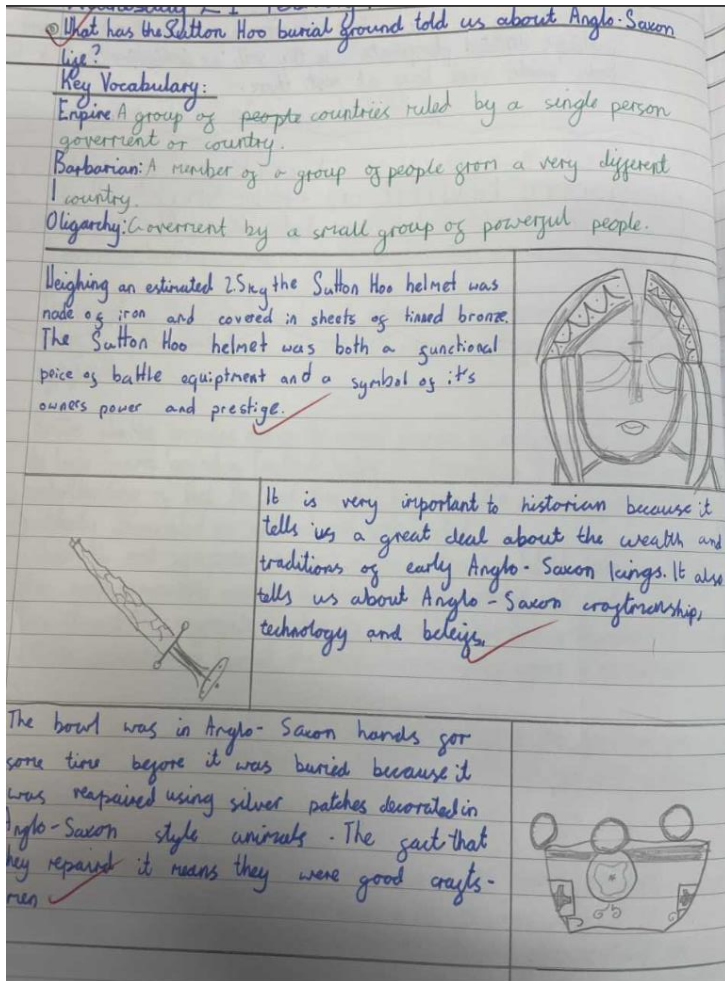 What has the Sutton Hoo burial ground told us about Anglo-Saxon
life?
Key Vocabulary:
Empire: A group of people countries ruled by a single person
goverment or country.
Barbarian: A member of a group of people from a very different
country.
Oligarchy: Goverment by a small group of powerful people.
Weighing an estimated 2.5kg the Sutton Hoo helmet was
made of iron and covered in sheets of tinned bronze.
The Sutton Hoo helmet was both a functional
peice of battle equiptment and a symbol of it's
owners power and prestige.
It is very important to historian because it
tells us a great deal about the wealth and
traditions of early Anglo-Saxon kings. It also
tells us about Anglo-Saxon craftmenship,
technology and beleifs.
The bowl was in Anglo-Saxon hands for
some time before it was buried because it
was reapaired using silver patches decorated in
Anglo-Saxon style animals. The fact that
they repaired it means they were good crafts-
men